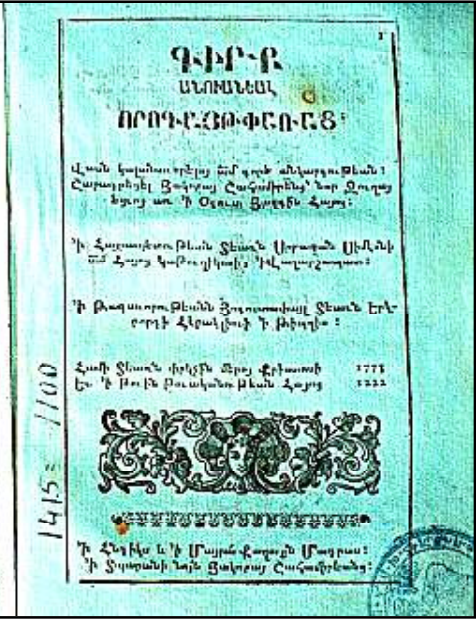 1
ԳԻՐՔ
ԱՆՈՒԱՆԵԱԼ
ՈՐՈԳԱՅԹ ՓԱՌԱՑ՝
Վասն կալանաւորելոյ ամ գործ անկարգութեան՝
Շարադրեցեալ Յակոբայ Շահամիրենց՝ նոր Ջուղայ
եցւոյ առ ՚ի Օգուտ Յազգին Հայոց։
՚Ի Հայրապետութեան Տեառն Սրբազան Սիմէօնի
ամ Հայոց կաթուղիկոսի, ՚ի Վաղարշապատ։
՚Ի Թագաւորութեանն Յոգոստափայլ Տեառն Երկ-
րորդի Հերակլիւսի ՚ի Թիֆլիս։
Համի Տեառն փրկչին մերոյ Քրիստոսի 1773
Եւ ՚ի Թուին Թուականութեան Հայոց 1222
՚Ի Հնդիկս ՚ի Մայրաքաղաքն Մադրաս։
՚Ի Տպարանի նոյն Յակոբայ Շահամիրեանց։
1415: 1100